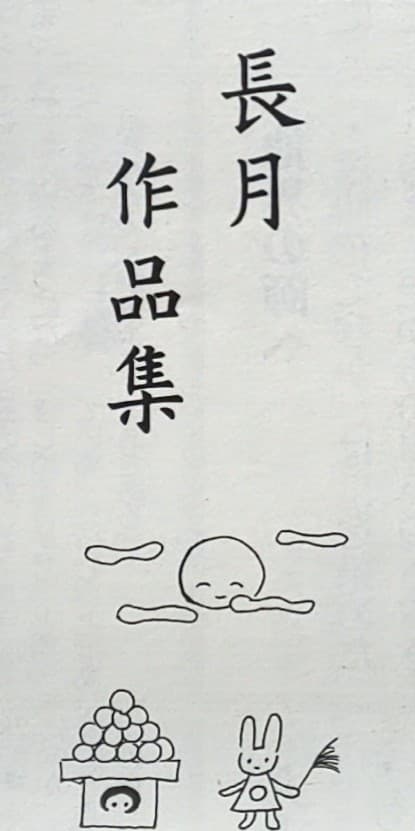 長月
作品集